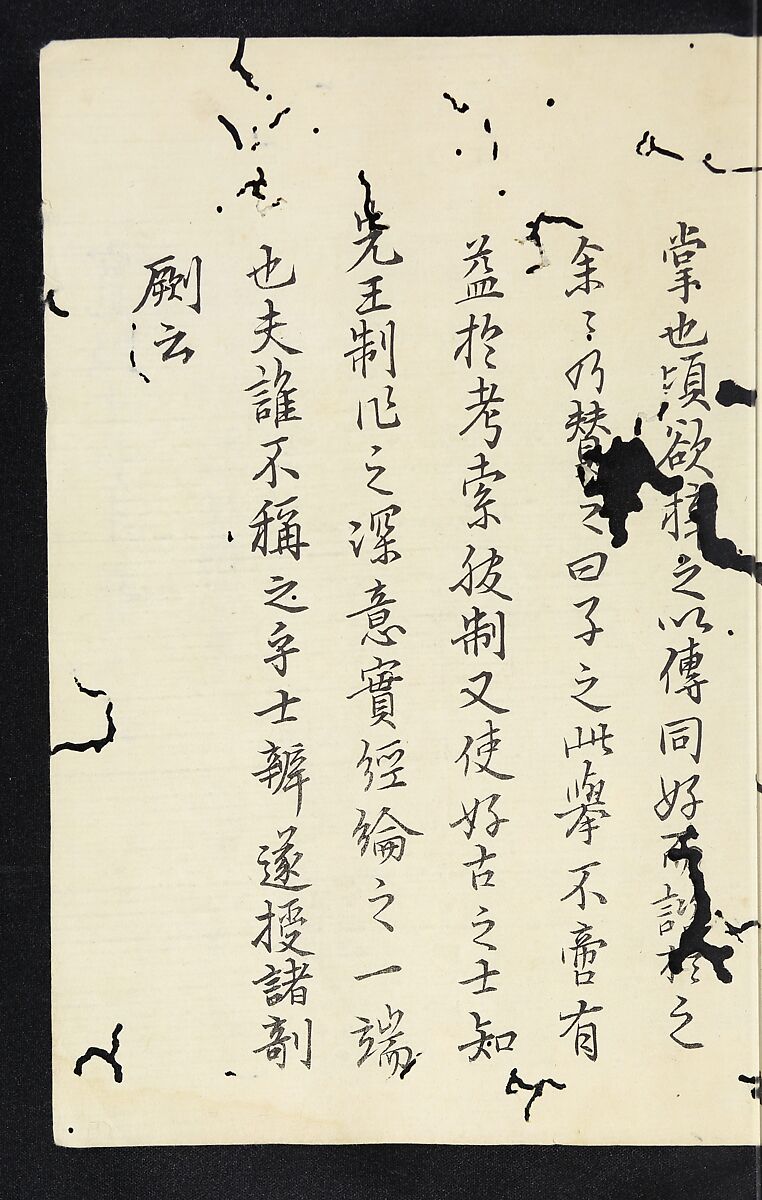 掌也頃欲梓之以傳同好而於之
余〻乃贊之曰子之此擧不啻有
益於考索服制又使好古之士知
先王制作之深意實經綸之一端
也夫誰不稱之乎士辨遂授諸剞
劂云